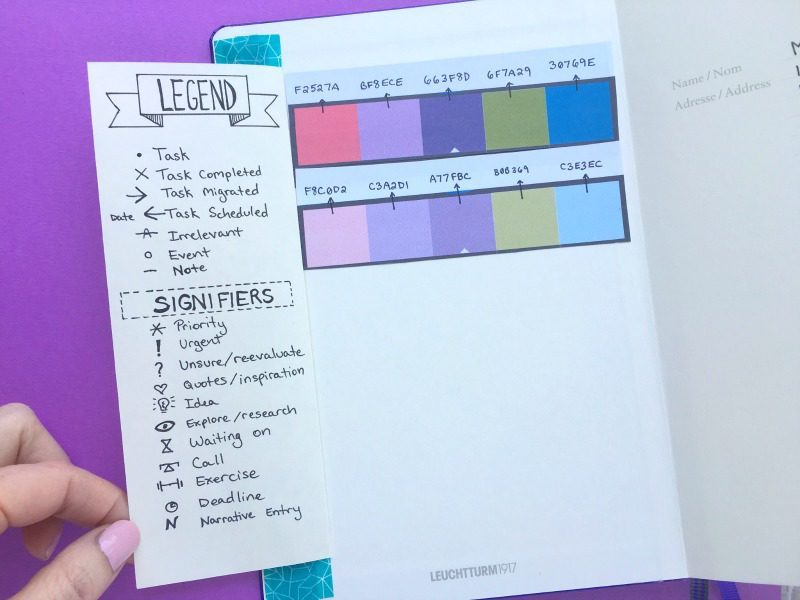 LEGEND
• Task
X Task Completed
→ Task Migrated
Date ← Task Scheduled
A Irrelevant
o Event
— Note
SIGNIFIERS
* Priority
! Urgent
? Unsure/reevaluate
♡ Quotes/inspiration
Idea
Explore/research
Waiting on
Call
Exercise
Deadline
N Narrative Entry
F2527A BF8ECE 663F8D 6F7A29 30769E
F8C0D2 C3A2D1 A77FBC B0B369 C3E3EC
LEUCHTTURM1917
Name / Nom
Adresse / Address